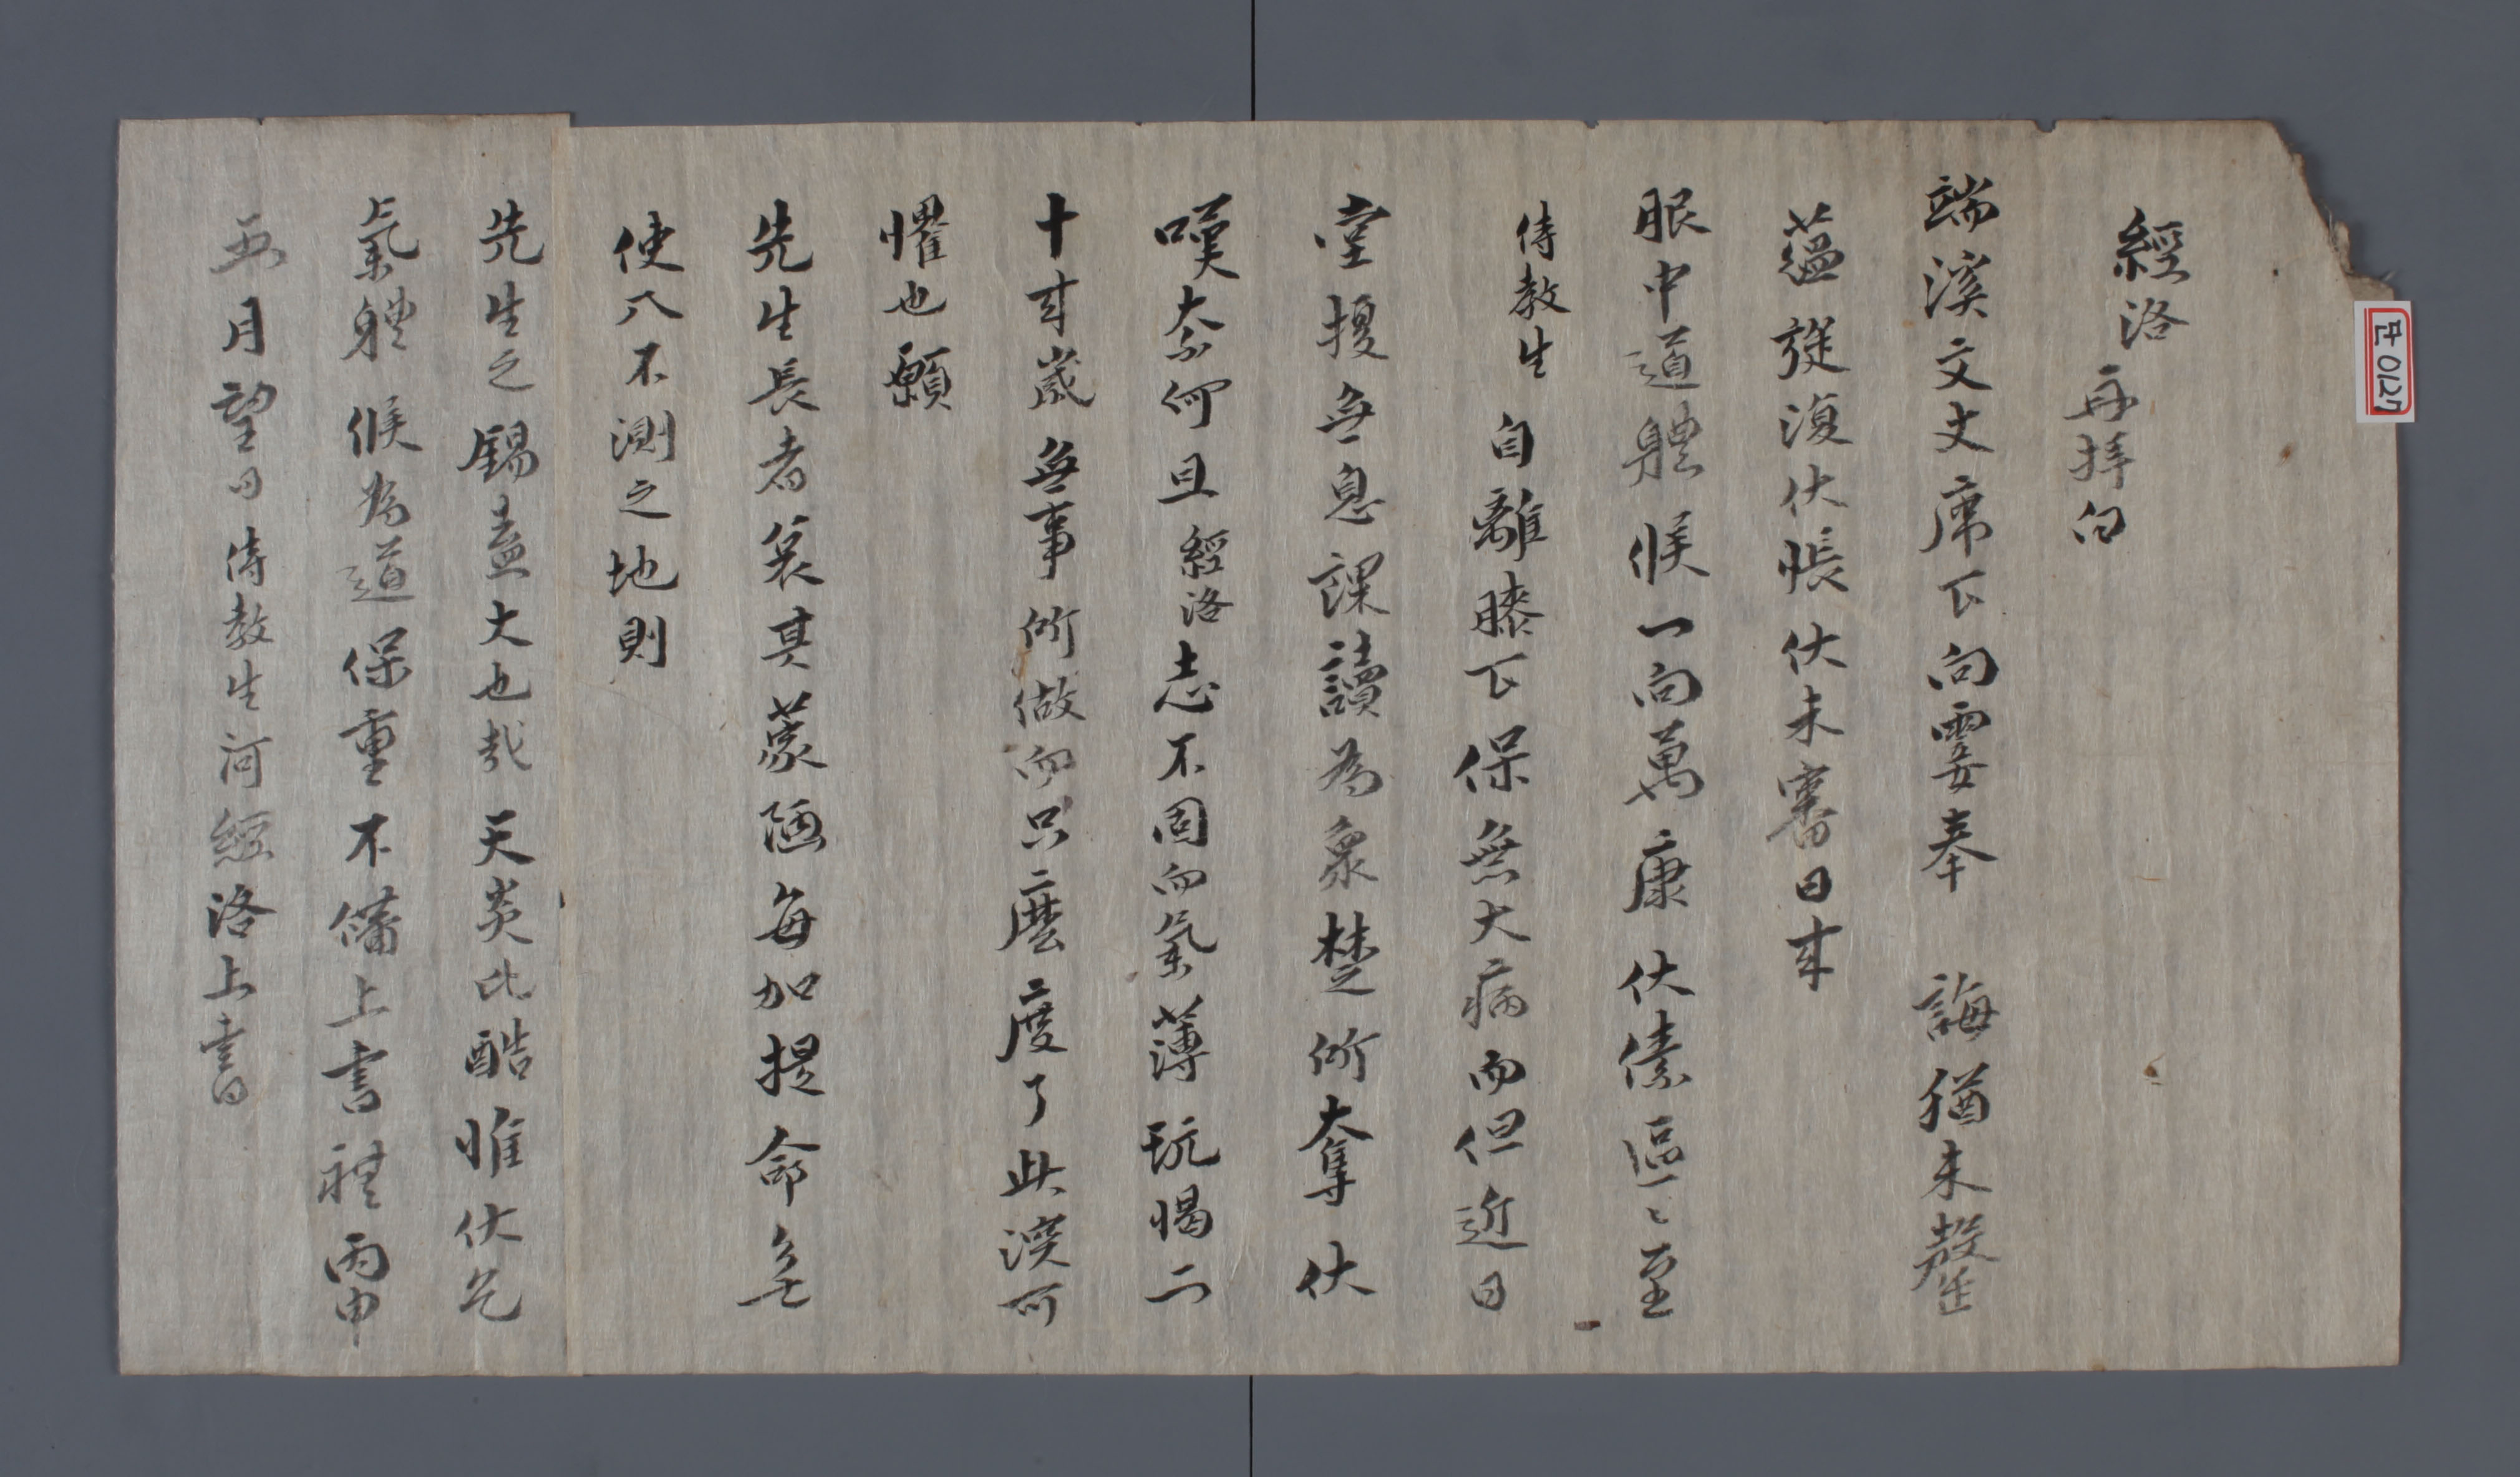 經洛再拜白
端溪文丈席下向霎奉 誨猶未罄
蘊旋復伏悵伏未審日來
服中道體候一向萬康伏傃區〻至
侍教生自離膝下保無大病而但近日
室擾無息課讀為衆楚所奪伏
嘆奈何且經洛志不固而氣薄玩愒二
十來歲無事所做而只麽度了此深可
懼也願
先生長者哀其蒙陋每加提命無
使入不測之地則
先生之錫盍大也哉天炎比酷惟伏乞
氣體候為道保重不備上書禮丙申
五月望日侍教生河經洛上書
단0127